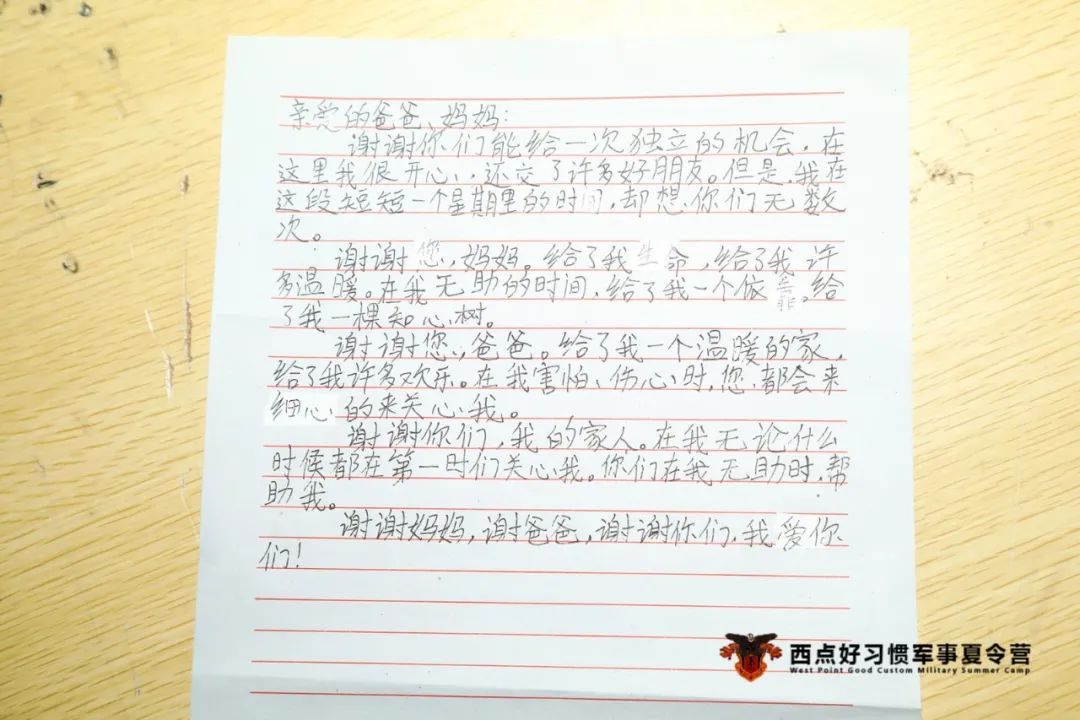 亲爱的爸爸、妈妈：
谢谢你们能给一次独立的机会，在
这里我很开心，还交了许多好朋友。但是，我在
这段短短一个星期里的时间，却想你们无数
次。
谢谢您，妈妈。给了我生命，给了我许
多温暖。在我无助的时间，给了我一个依靠。给
了我一棵知心树。
谢谢您，爸爸。给了我一个温暖的家，
给了我许多欢乐。在我害怕、伤心时，您都会来
细心的来关心我。
谢谢你们，我的家人。在我无论什么
时候都在第一时们关心我。你们在我无助时，帮
助我。
谢谢妈妈，谢爸爸，谢谢你们，我爱你
们！
西点好习惯军事夏令营
West Point Good Custom Military Summer Camp